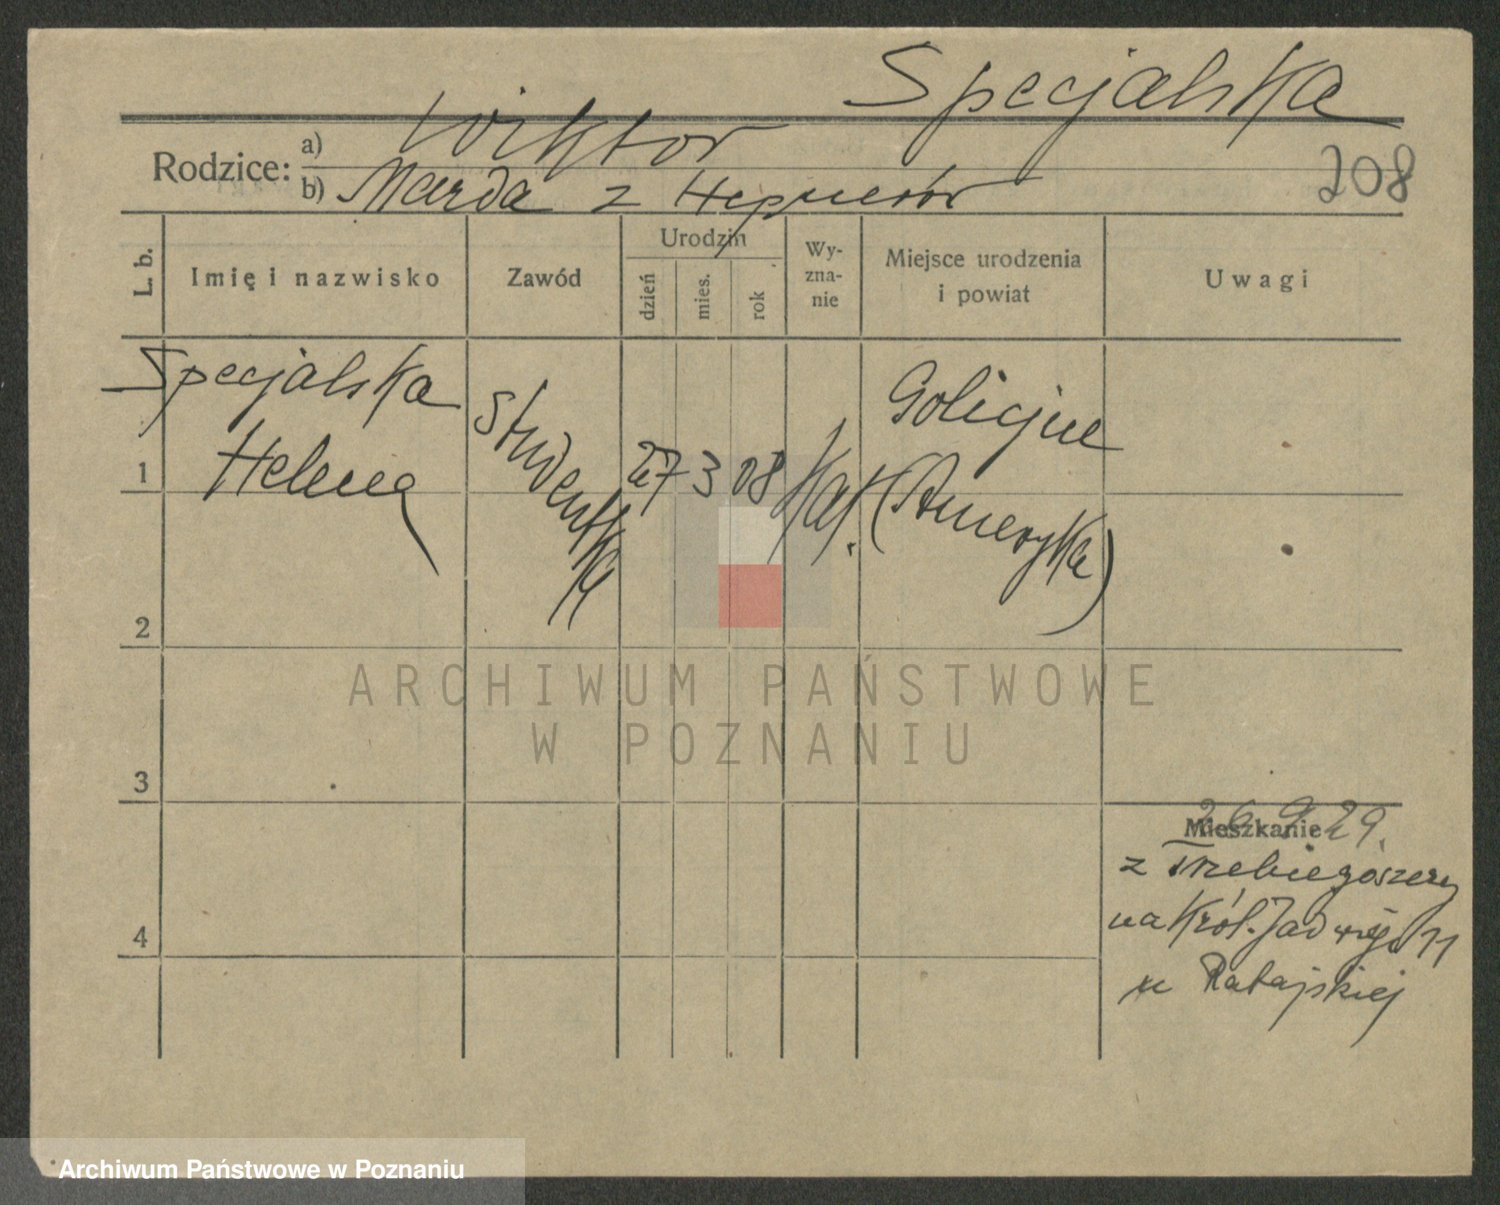 Specjalska
Rodzice:
a) Wiktor
b) Marda z Hepnerów
208
L. b.
Imię i nazwisko
Zawód
Urodzin
dzień
mies.
rok
Wy-
zna-
nie
Miejsce urodzenia
i powiat
Uwagi
1
Specjalska
Helena
studentka
27 3 08
kat.
(Ameryka)
2
3
4
Mieszkanie
26.9.29.
z
na Król. Jadwigi 11
u Ratajskiej
ARCHIWUM PAŃSTWOWE
W POZNANIU
Archiwum Państwowe w Poznaniu